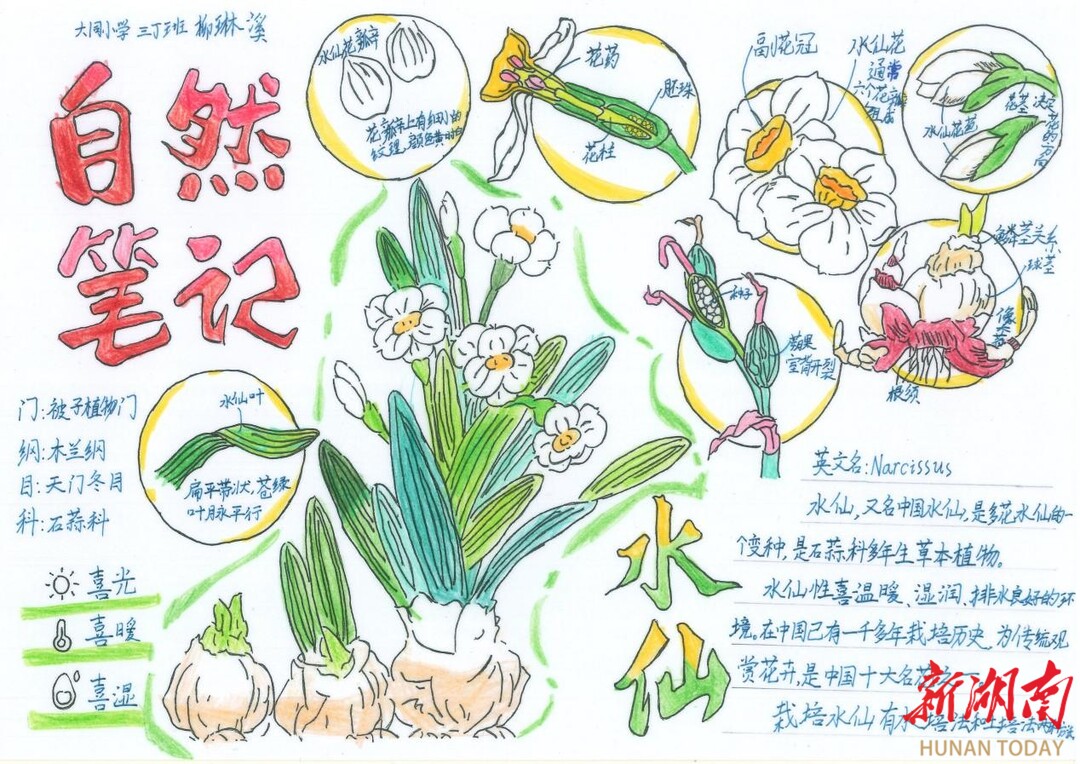 大同小学 三丁班 柳琳溪
自然
笔记
水仙花瓣
花瓣上有细小的
纹理,颜色黄时白
花药
胚珠
花柱
副花冠
水仙花
通常
六个花瓣
组成
花莛决定花的方向
水仙花苞
鳞茎关系
球茎
像大蒜
根须
种子
蒴果
室背开裂
水仙叶
扁平带状,苍绿
叶脉平行
门:被子植物门
纲:木兰纲
目:天门冬目
科:石蒜科
喜光
喜暖
喜湿
水仙
英文名:Narcissus
水仙,又名中国水仙,是多花水仙的一
个变种,是石蒜科多年生草本植物。
水仙性喜温暖、湿润、排水良好的环
境。在中国已有一千多年栽培历史,为传统观
赏花卉,是中国十大名花
栽培水仙有水培法和土培法两
新湖南
HUNAN TODAY